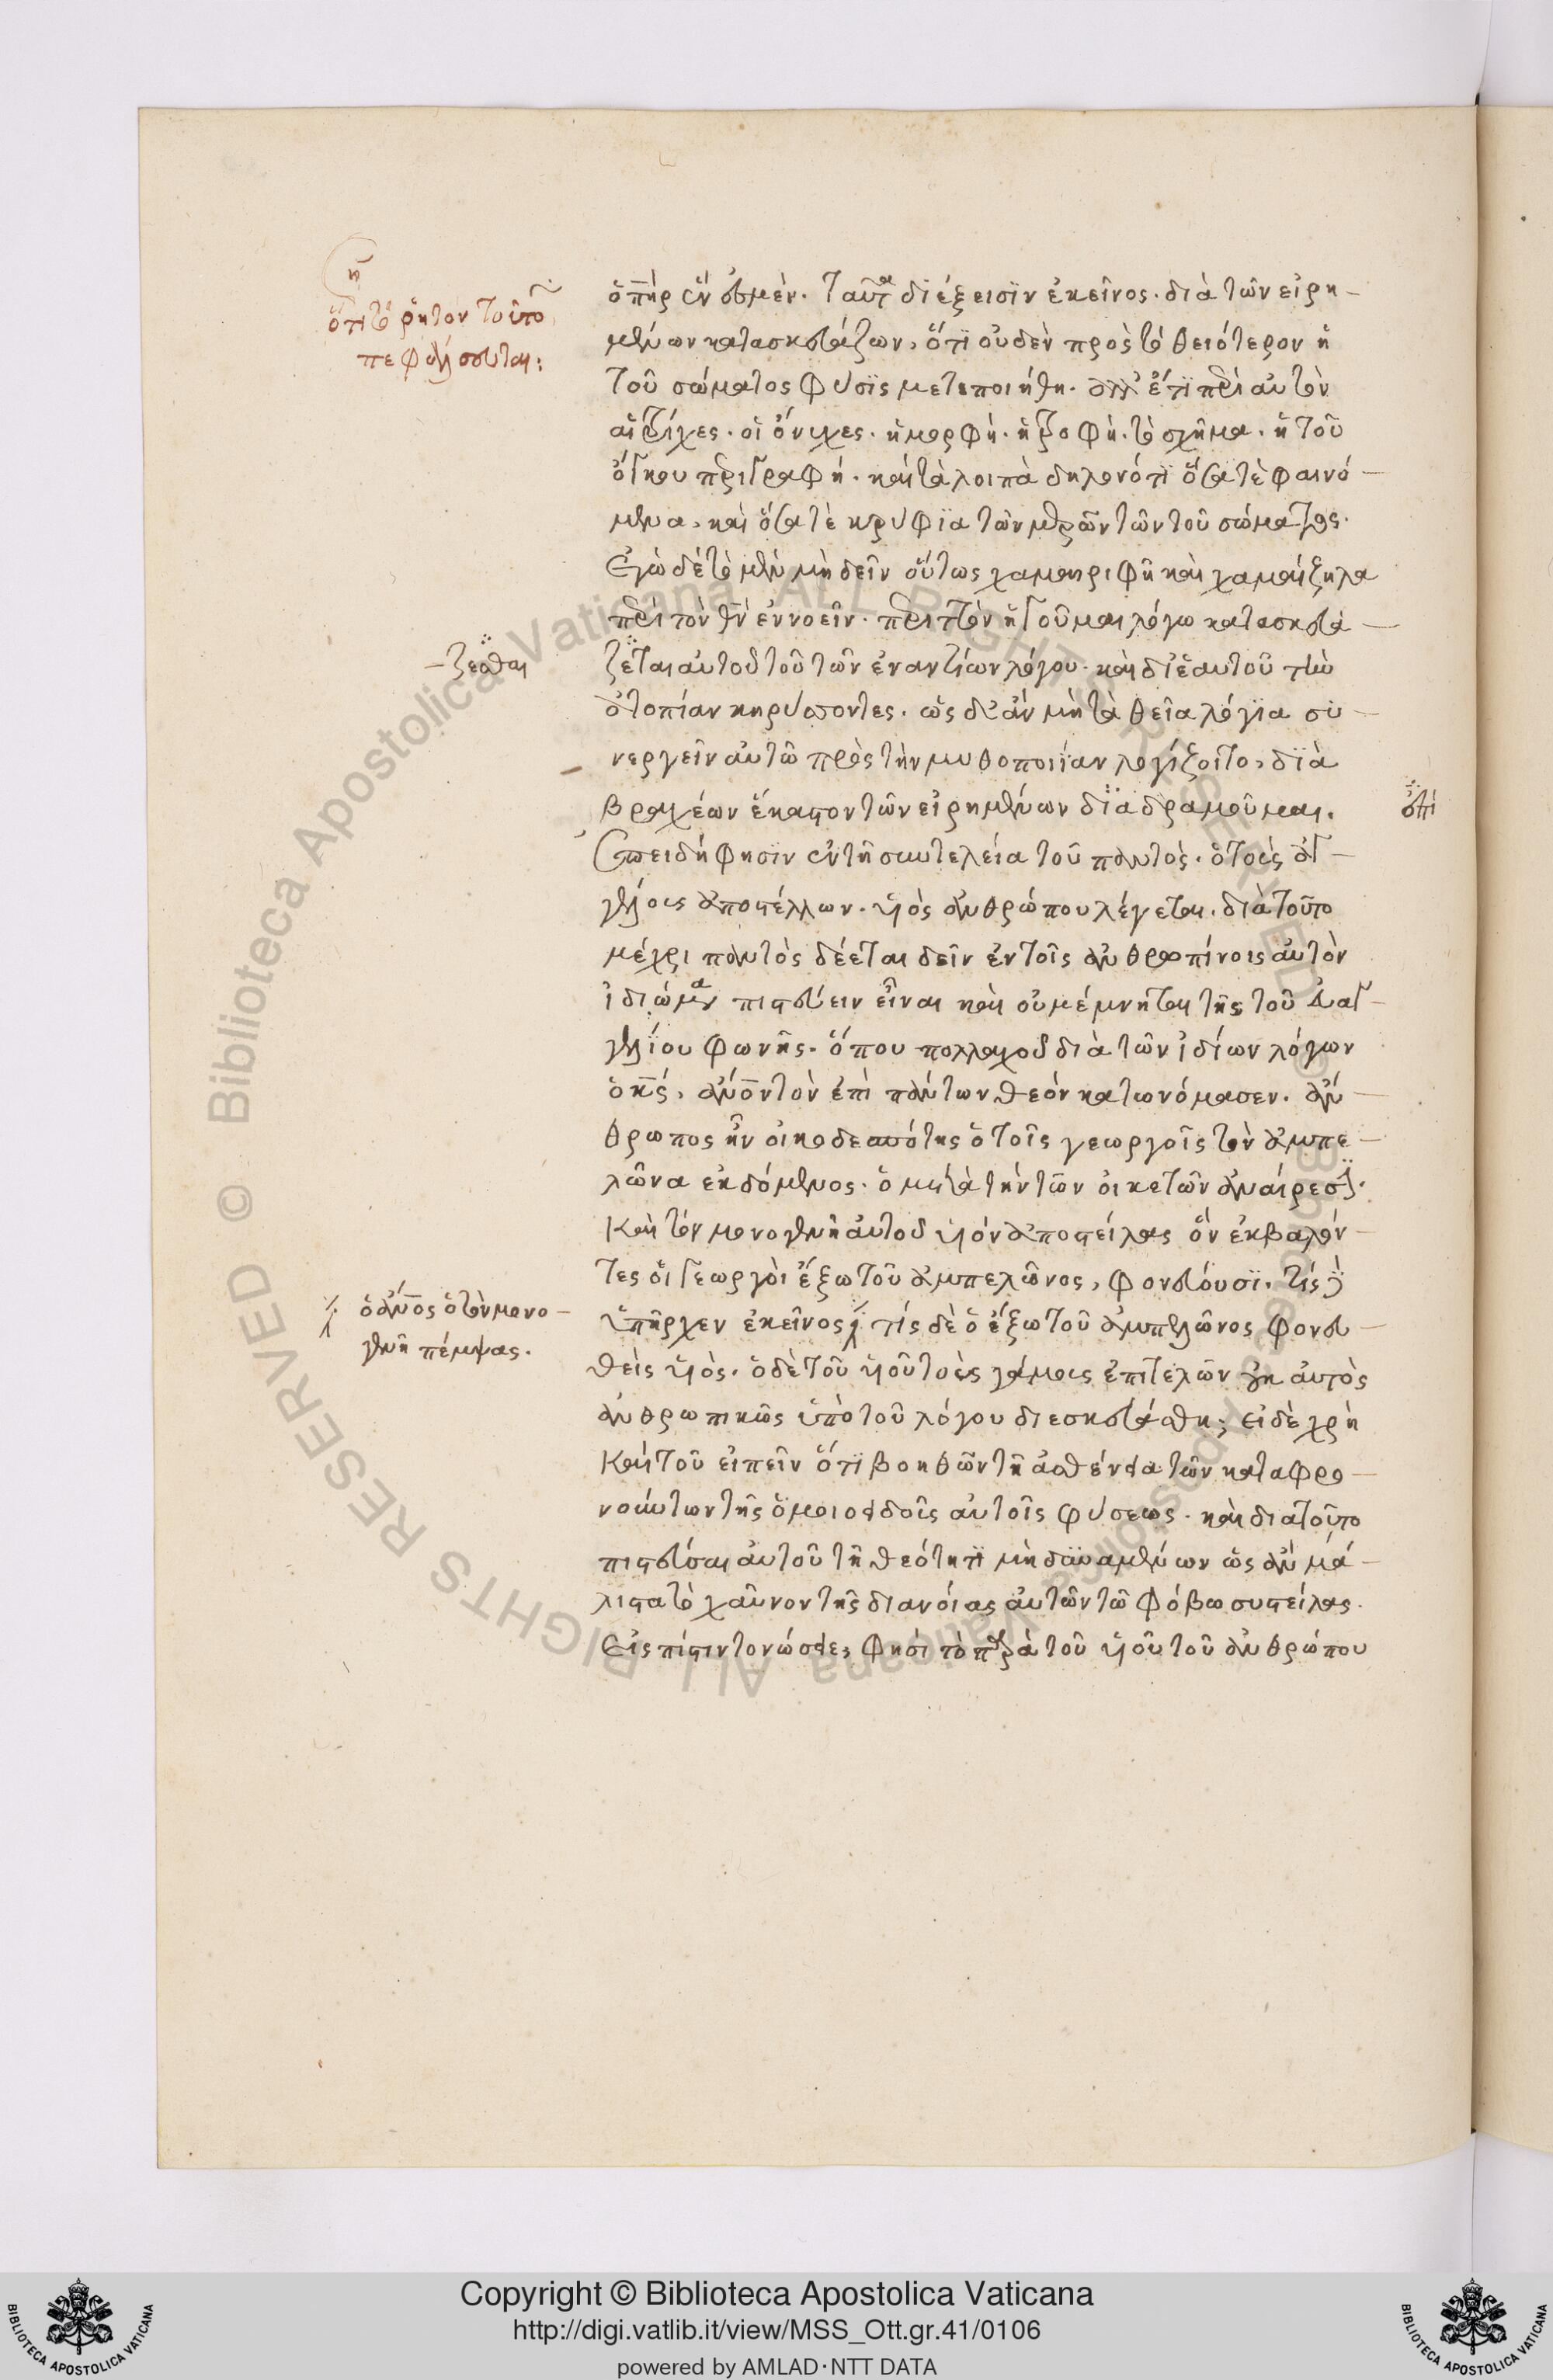 ὅπερ ἐν ὑμὲν. ταῦτα διέξεισϊν ἐκεῖνος. διὰ τῶν εἰρη-
μένων κατασκευάζων, ὅτι οὐδὲν πρὸς τὸ θειότερον ἡ
τοῦ σώματος φύσϊς μετεποιήθη. ἀλλ' ἔτι περὶ αὐτὸν
αἱ τρίχες. οἱ ὄνυχες. ἡ μορφὴ. ἡ τροφὴ. τὸ σχῆμα. ἡ τοῦ
ὄγκου περιγραφή. καὶ τὰ λοιπὰ δηλονότι ὅσα τὲ φαινό-
μενα, καὶ ὅσα τὲ κρύφϊα τῶν τοῦ σώματος.
Ἐγὼ δὲ τὸ μὲν μὴ δεῖν οὕτως χαμαιριφῆ καὶ χαμαίζηλα
περὶ τὸν θν ἐννοεῖν. περιττὸν ἡγοῦμαι λόγω κατασκευά-
-ζεσθαι
ζεται αὐτοῦ τοῦ τῶν ἐναντίων λόγου. καὶ δι' ἑαυτοῦ τὴν
ἀτοπίαν κηρύσσοντες. ὡς δ' ἂν μὴ τὰ θεῖα λόγϊα συ-
νεργεῖν αὐτῶ πρὸς τὴν μυθοποιΐαν λογίζοιτο, διὰ
βραχέων ἕκαστον τῶν εἰρημένων διαδραμοῦμαι.
ὅτι
Ἐπειδή φησϊν ἐν τῆ συντελεία τοῦ παντὸς. ὁ τοὺς ἀγ-
γέλους ἀποστέλλων. υἱὸς ἀνθρώπου λέγεται. διὰ τοῦτο
μέχρι παντὸς δέεται δεῖν ἐν τοῖς ἀνθρωπίνοις αὐτὸν
ἰδιώμασι πιστεύειν εἶναι καὶ οὐ μέμνηται τῆς τοῦ εὐαγ-
γελίου φωνῆς. ὅπου πολλαχοῦ διὰ τῶν ἰδίων λόγων
ὁ κς, ἄνον τὸν ἐπὶ πάντων θεὸν κατωνόμασεν. ἄν-
θρωπος ἦν οἰκοδεσπότης ὁ τοῖς γεωργοῖς τὸν ἀμπε-
λῶνα ἐκδόμενος. ὁ μετὰ τὴν τῶν οἰκετῶν ἀναίρεσιν.
Καὶ τὸν μονογενῆ αὐτοῦ υἱὸν ἀποστείλας ὃν ἐκβαλόν-
τες οἱ γεωργοὶ ἔξω τοῦ ἀμπελῶνος, φονεύουσϊ. τίς
ὁ ἄνος ὁ τὸν μονο-
γενῆ πέμψας.
ὑπῆρχεν ἐκεῖνος τίς δὲ ὁ ἔξω τοῦ ἀμπελῶνος φονευ-
θεὶς υἱὸς. ὁ δὲ τοῦ υἱοῦ τοὺς γάμους ἐπιτελῶν αὐτὸς
ἀνθρωπικῶς ὑπὸ τοῦ λόγου διεσκευάσθη; εἰ δὲ χρὴ
Καὶ τοῦ εἰπεῖν ὅτι βοηθῶν τῆ ἀσθένεια τῶν καταφρο-
νούντων τῆς ὁμοιοειδοῦς αὐτοῖς φύσεως. καὶ διατοῦτο
πιστεῦσαι αὐτοῦ τῆ θεότητι μὴ δυναμένων ὡς ἂν μά-
λιστα τὸ χαῦνον τῆς διανοίας αὐτῶν τῶ φόβω συστείλας.
Εἰς πίστιν τονώσειε, φησί τὸ παρὰ τοῦ υἱοῦ τοῦ ἀνθρώπου
Copyright © Biblioteca Apostolica Vaticana
http://digi.vatlib.it/view/MSS_Ott.gr.41/0106
powered by AMLAD·NTT DATA